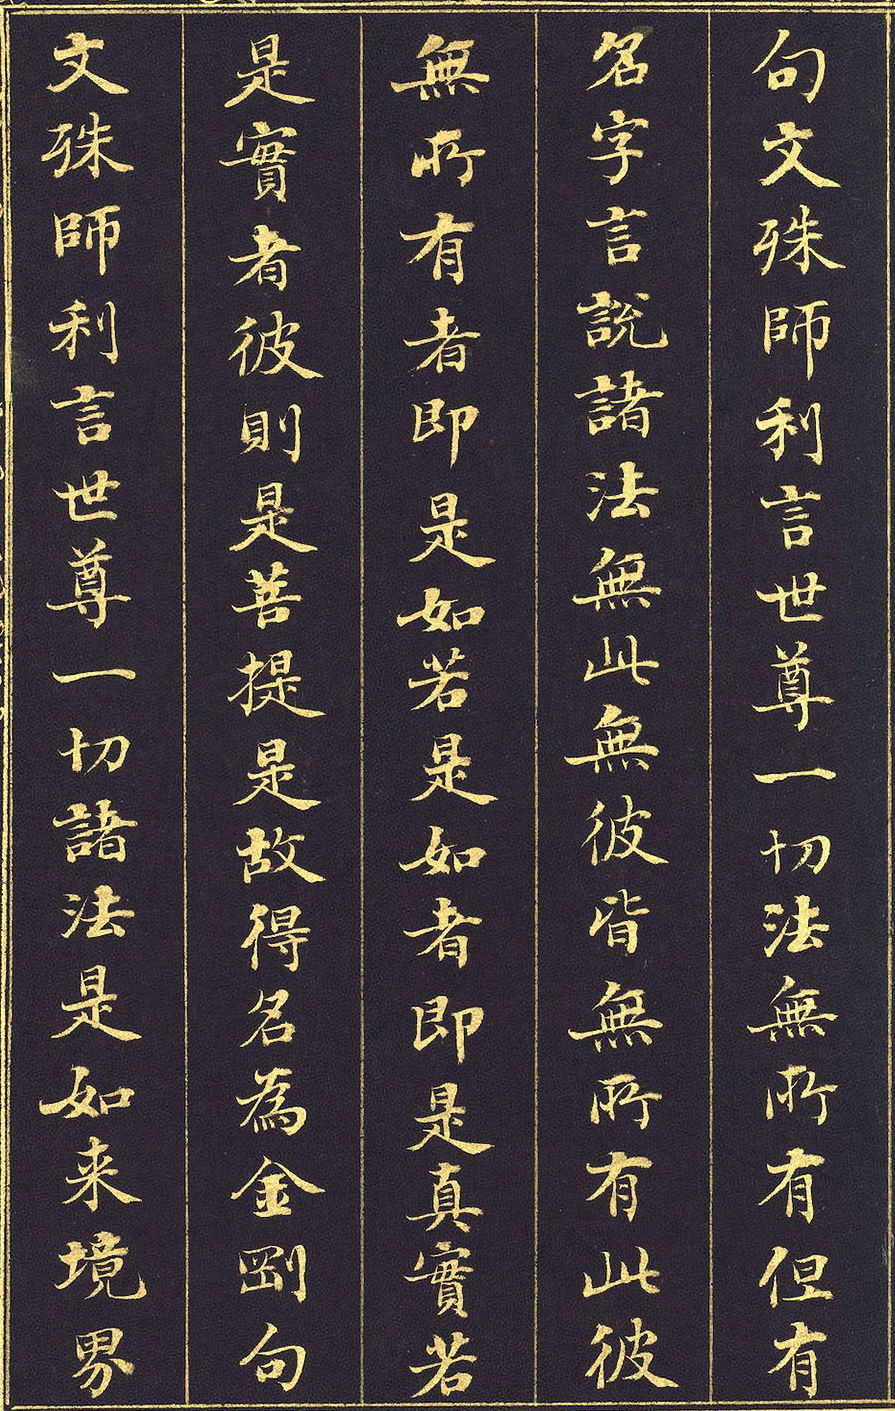 句文殊師利言世尊一切法無所有但有
名字言說諸法無此無彼皆無所有此彼
無所有者即是如若是如者即是真實若
是實者彼則是菩提是故得名為金剛句
文殊師利言世尊一切諸法是如来境界